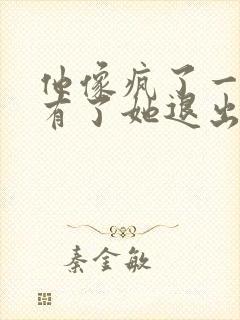 他像疯了一
有了她退出
秦金敏